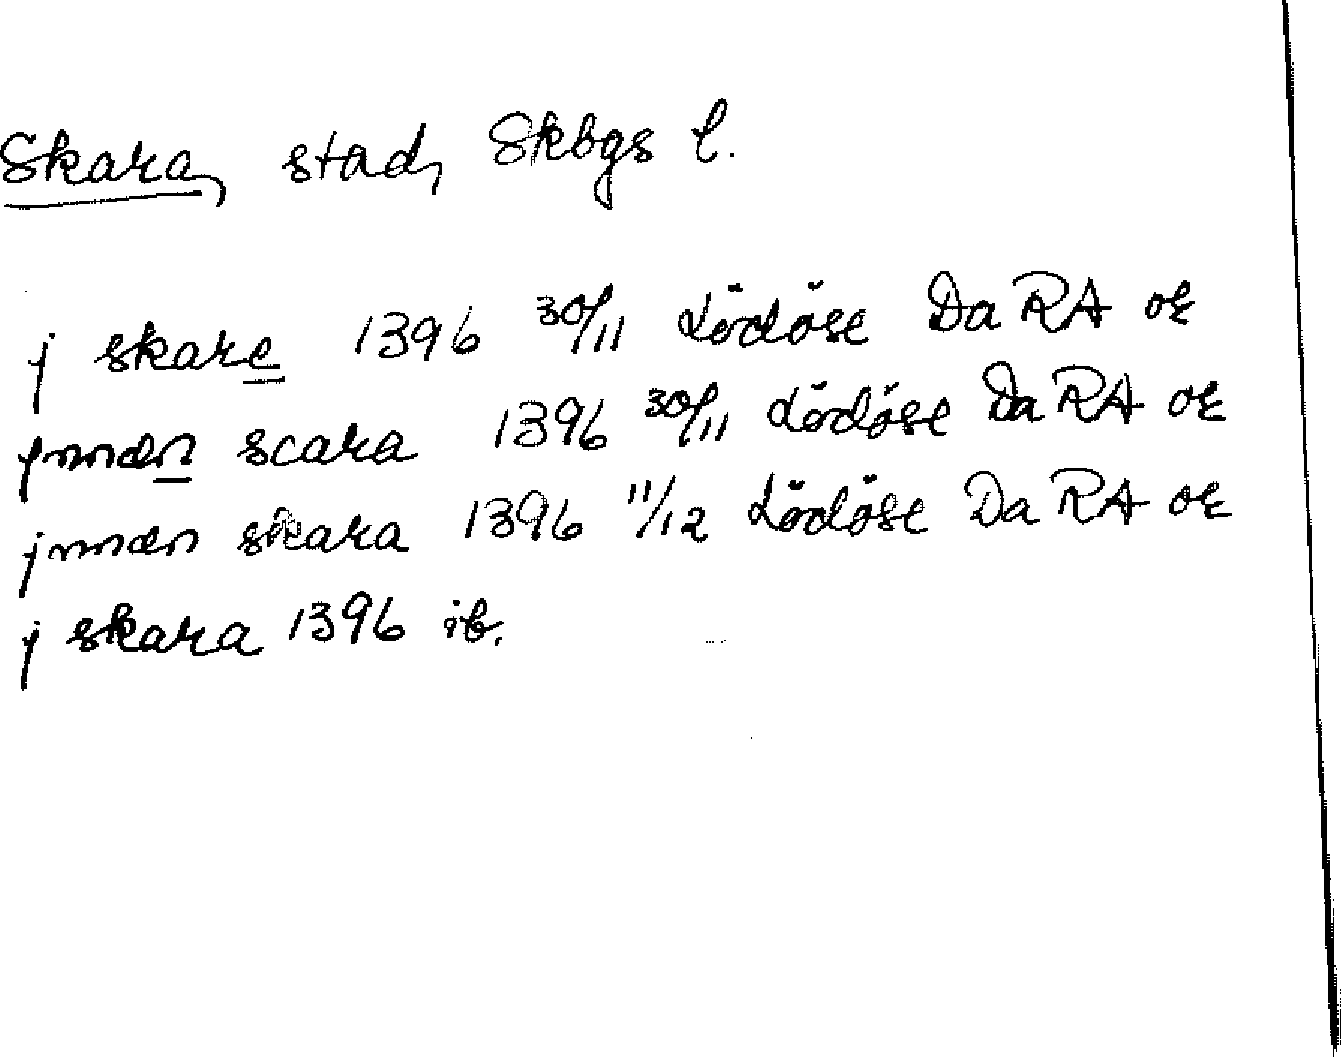 Skara, stad, Skbgs l.
j skare 1396 30/11 Lödöse Da RA or
jnnæn scara 1396 30/11 Lödöse Da RA or
jnnæn skara 1396 11/12 Lödöse Da RA or
j skara 1396 ib.